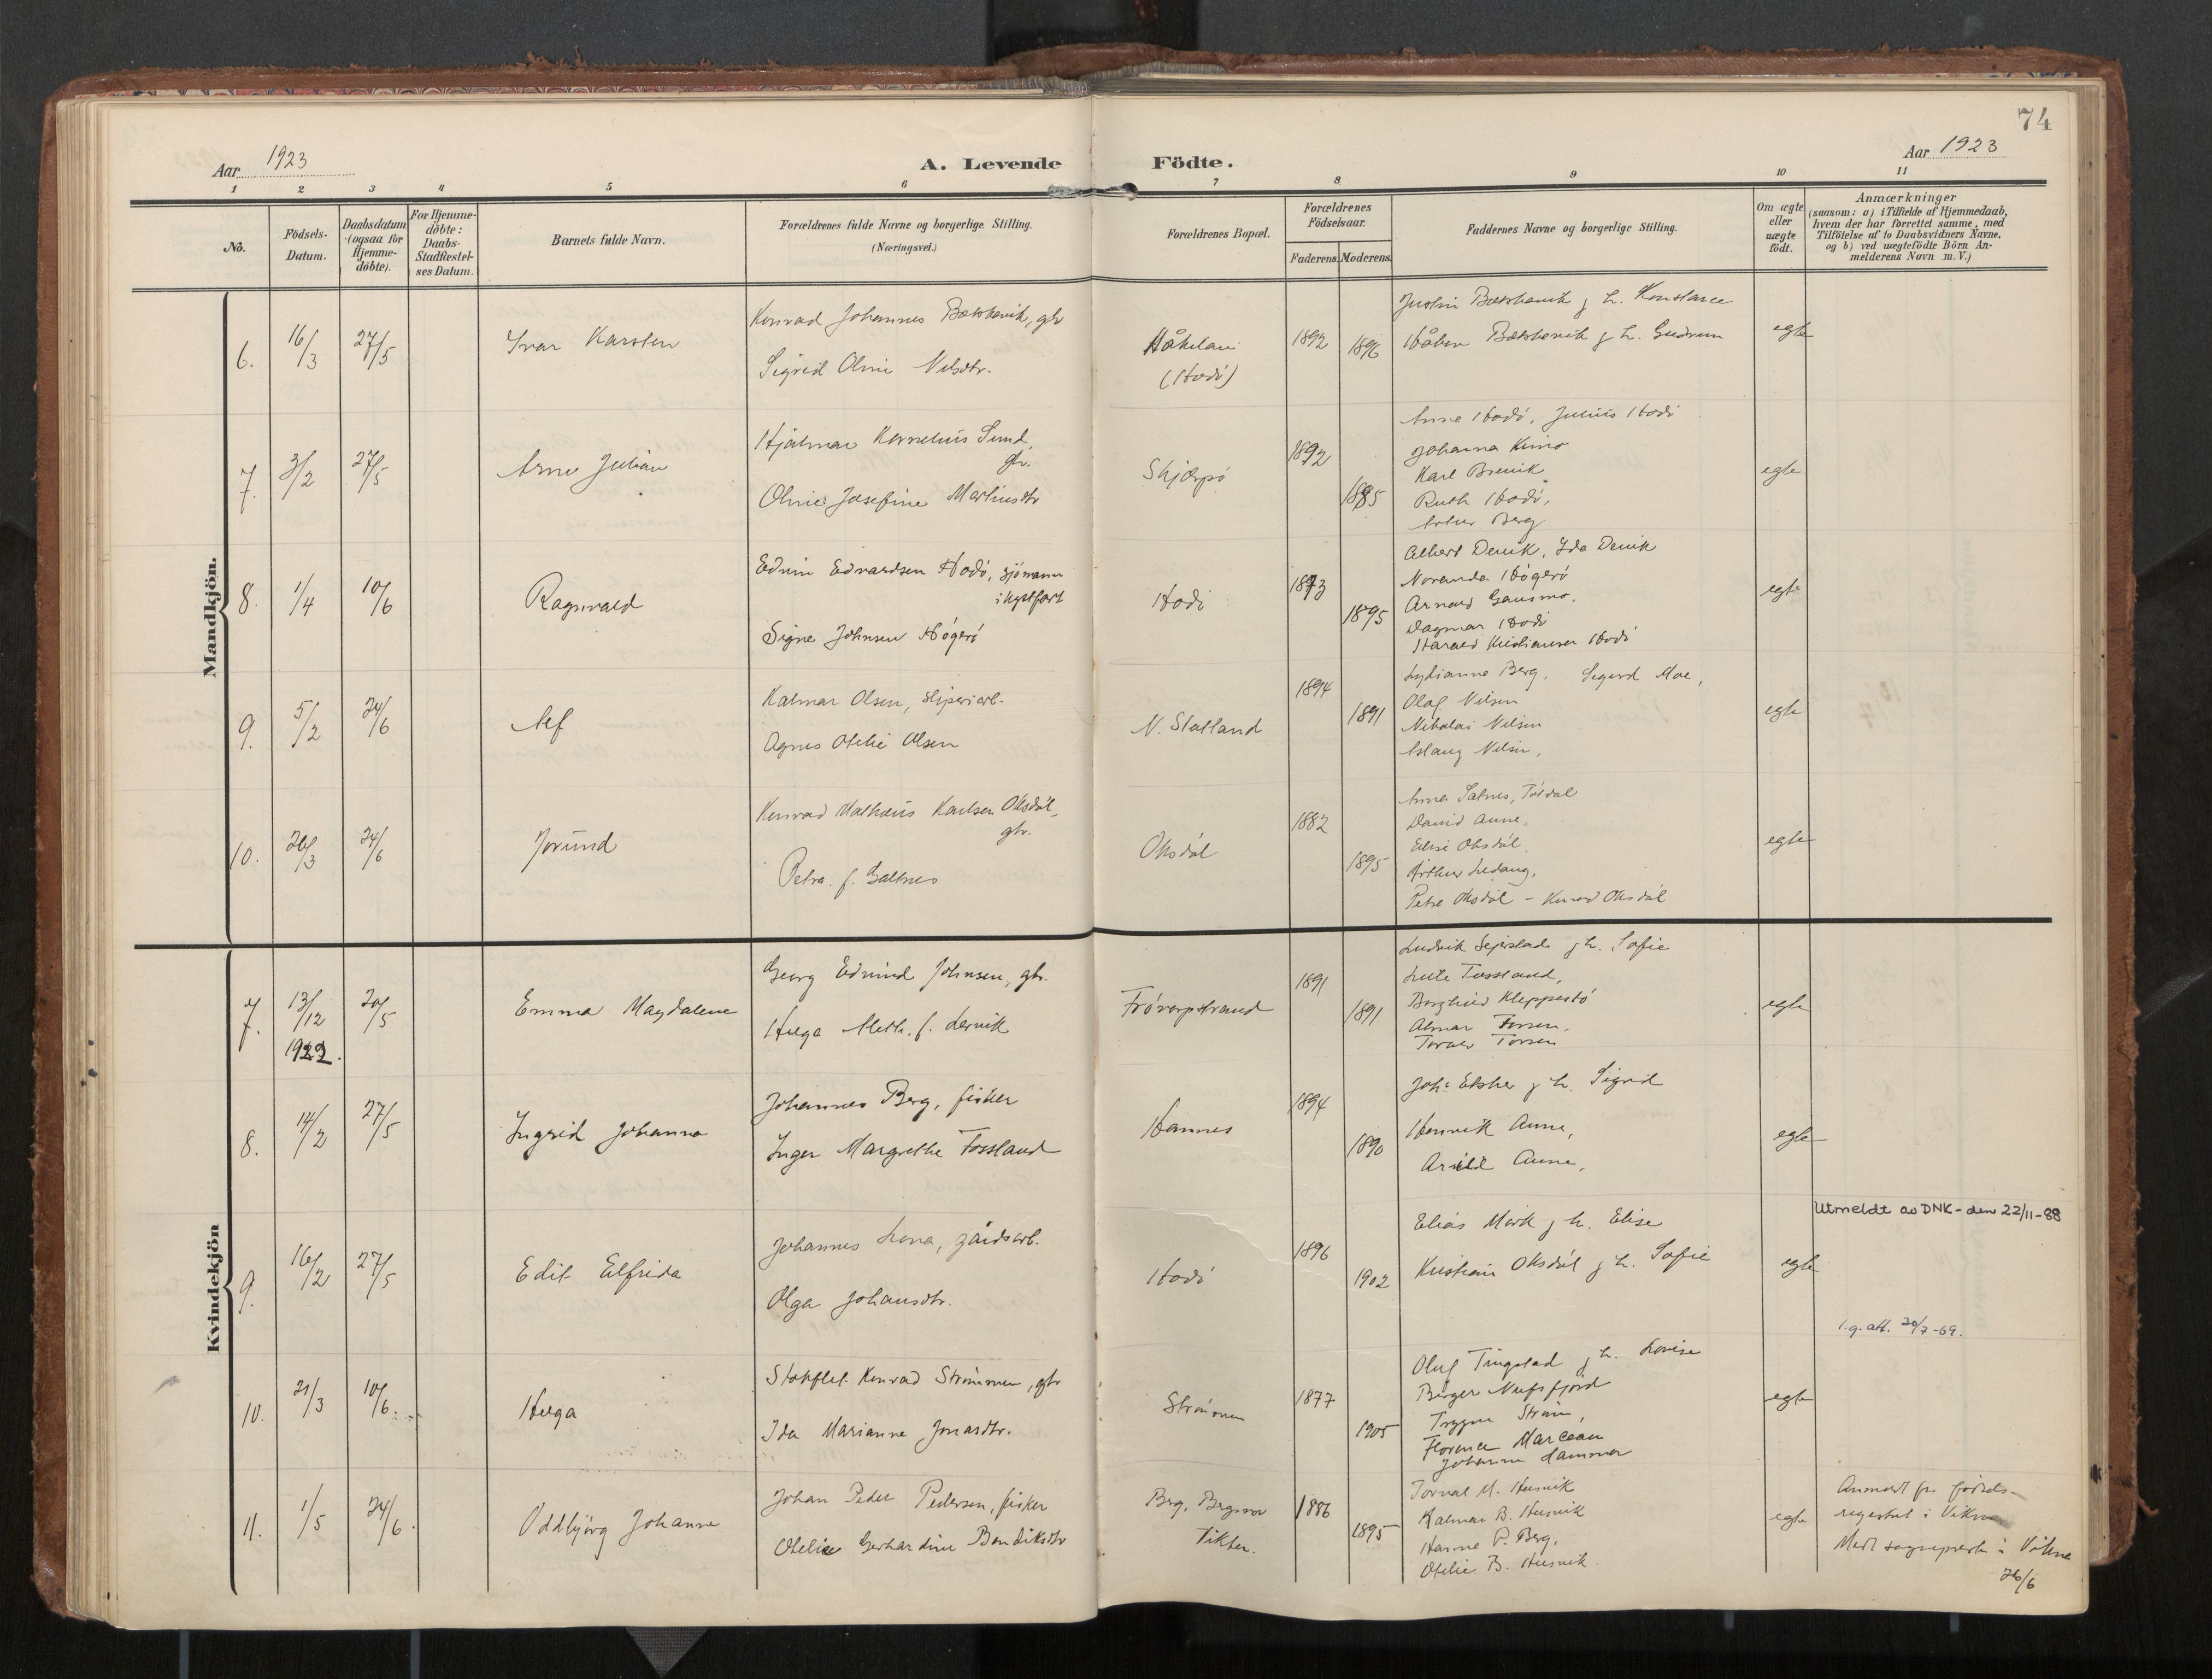 74
Aar 1923
A. Levende Födte.
Aar 1923
1 2 3 4 5 6 7 8 9 10 11
No.
Födsels-
Datum.
Daabsdatum
(ogsaa for
Hjemme-
döbte).
For Hjemme-
döbte:
Daabs-
Stadfæstel-
ses Datum.
Barnets fulde Navn.
Forældrenes fulde Navne og borgerlige Stilling.
(Næringsvei.)
Forældrenes Bopæl.
Forældrenes
Födselsaar.
Faderens. Moderens.
Faddernes Navne og borgerlige Stilling.
Om ægte
eller
uægte
födt.
Anmærkninger
(saasom: a) i Tilfælde af Hjemmedaab,
hvem der har forrettet samme, med
Tilföielse af to Daabsvidners Navne,
og b) ved uægtefödte Börn An-
melderens Navn m. V.)
Mandkjön.
6. 16/3 27/5 Ivar Karsten
Konrad Johannes Bætskevik, gbr
Sigrid Oline Nilsdtr.
(Hodö)
1892 1896
Justin Bætskevik g h. Konstance
Håkon Bætskevik g h. Gudrun
egte
7. 3/2 27/5 Arne Julian
Hjalmar Kornelius Sund,
gbr.
Oline Josefine Martinsdtr
Skjærpö
1892 1885
Anne Hodö, Julius Hodö
Johanna Kimo
Karl Brevik
Ruth Hodö,
Artur Berg
egte
8. 1/4 10/6 Ragnvald
Edvin Edvardsen Hodö, sjömann
i kystfart
Signe Johnsen Högerö
Hodö
1873 1895
Albert Devik, Ida Devik
Noranda Högerö
Arnold Gausmo.
Dagmar Hodö
Harald Kristiansen Hodö
egte
9. 5/2 24/6 Alf
Kalmar Olsen, sliperiarb.
Agnes Otelie Olsen
N. Statland
1894 1891
Lydianne Berg, Sigurd Moe,
Olaf Nilsen
Nikolai Nilsen
Aslaug Nilsen,
egte
10. 26/3 24/6 Jorund
Konrad Mathæus Karlsen Oksdöl,
gbr.
Petra f. Galtnes
Oksdöl
1882 1895
Anna Satnes,
David Aune,
Elise Oksdöl,
Arthur Ledang,
Petra Oksdöl – Konrad Oksdöl
egte
Kvindekjön
7. 13/12 1922. 20/5 Emma Magdalene
Georg Edmund Johnsen, gbr.
Helga Aleth. f. Lervik
Fröverpstrand
1891 1891
Ludvik Sejerstad g h. Sofie
Lule Fossland,
Borghild Kleppestö
Almar Forsen,
egte
8. 14/2 27/5 Ingrid Johanna
Johannes Berg, fisker
Inger Margrethe Fossland
Hamnes
1894 1890
Joh: Elsker g h. Sigrid
Henrik Aune,
Arild Aune,
egte
9. 16/2 27/5 Edit Elfrida
Johannes Lona, gårdsarb.
Olga Johansdtr.
Hodö
1896 1902
Elias Mörk g h. Elise
Kristian Oksdöl g h. Sofie
egte
Utmeldt av DNK - den 22/11-88
l.g. att. 30/7-69.
10. 21/3 10/6. Helga
Stokflet Konrad Strömmen, gbr
Ida Marianne Jonasdtr.
Strömmen
1877 1905
Oluf Tingstad g h. Lovise
Birger Nufsfjord
Trygve Ström,
Florence Marceau
Johanne Hammer
egte
11. 1/5 24/6. Oddbjörg Johanne
Johan Peder Pedersen, fisker
Otelie Gerhardine Bendiksdtr
Berg, Bergsnov
Vikten.
1886 1895
Torval M. Husvik
Kalmar B. Husvik
Hanna P. Berg,
Otelie B. Husvik.
egte
Anmerkt fra födsels-
registret i Vikna
Medt sogneprest i Vikna
26/6